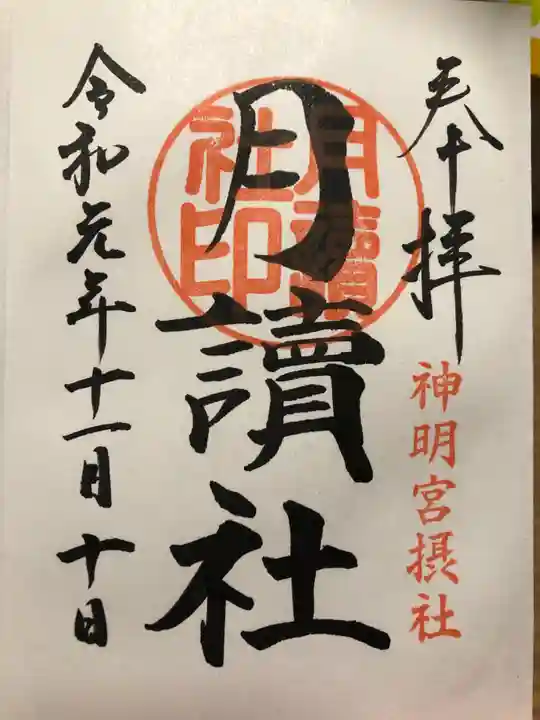 奉拝
神明宮摂社
月讀社
月讀社印
令和元年十一月十日